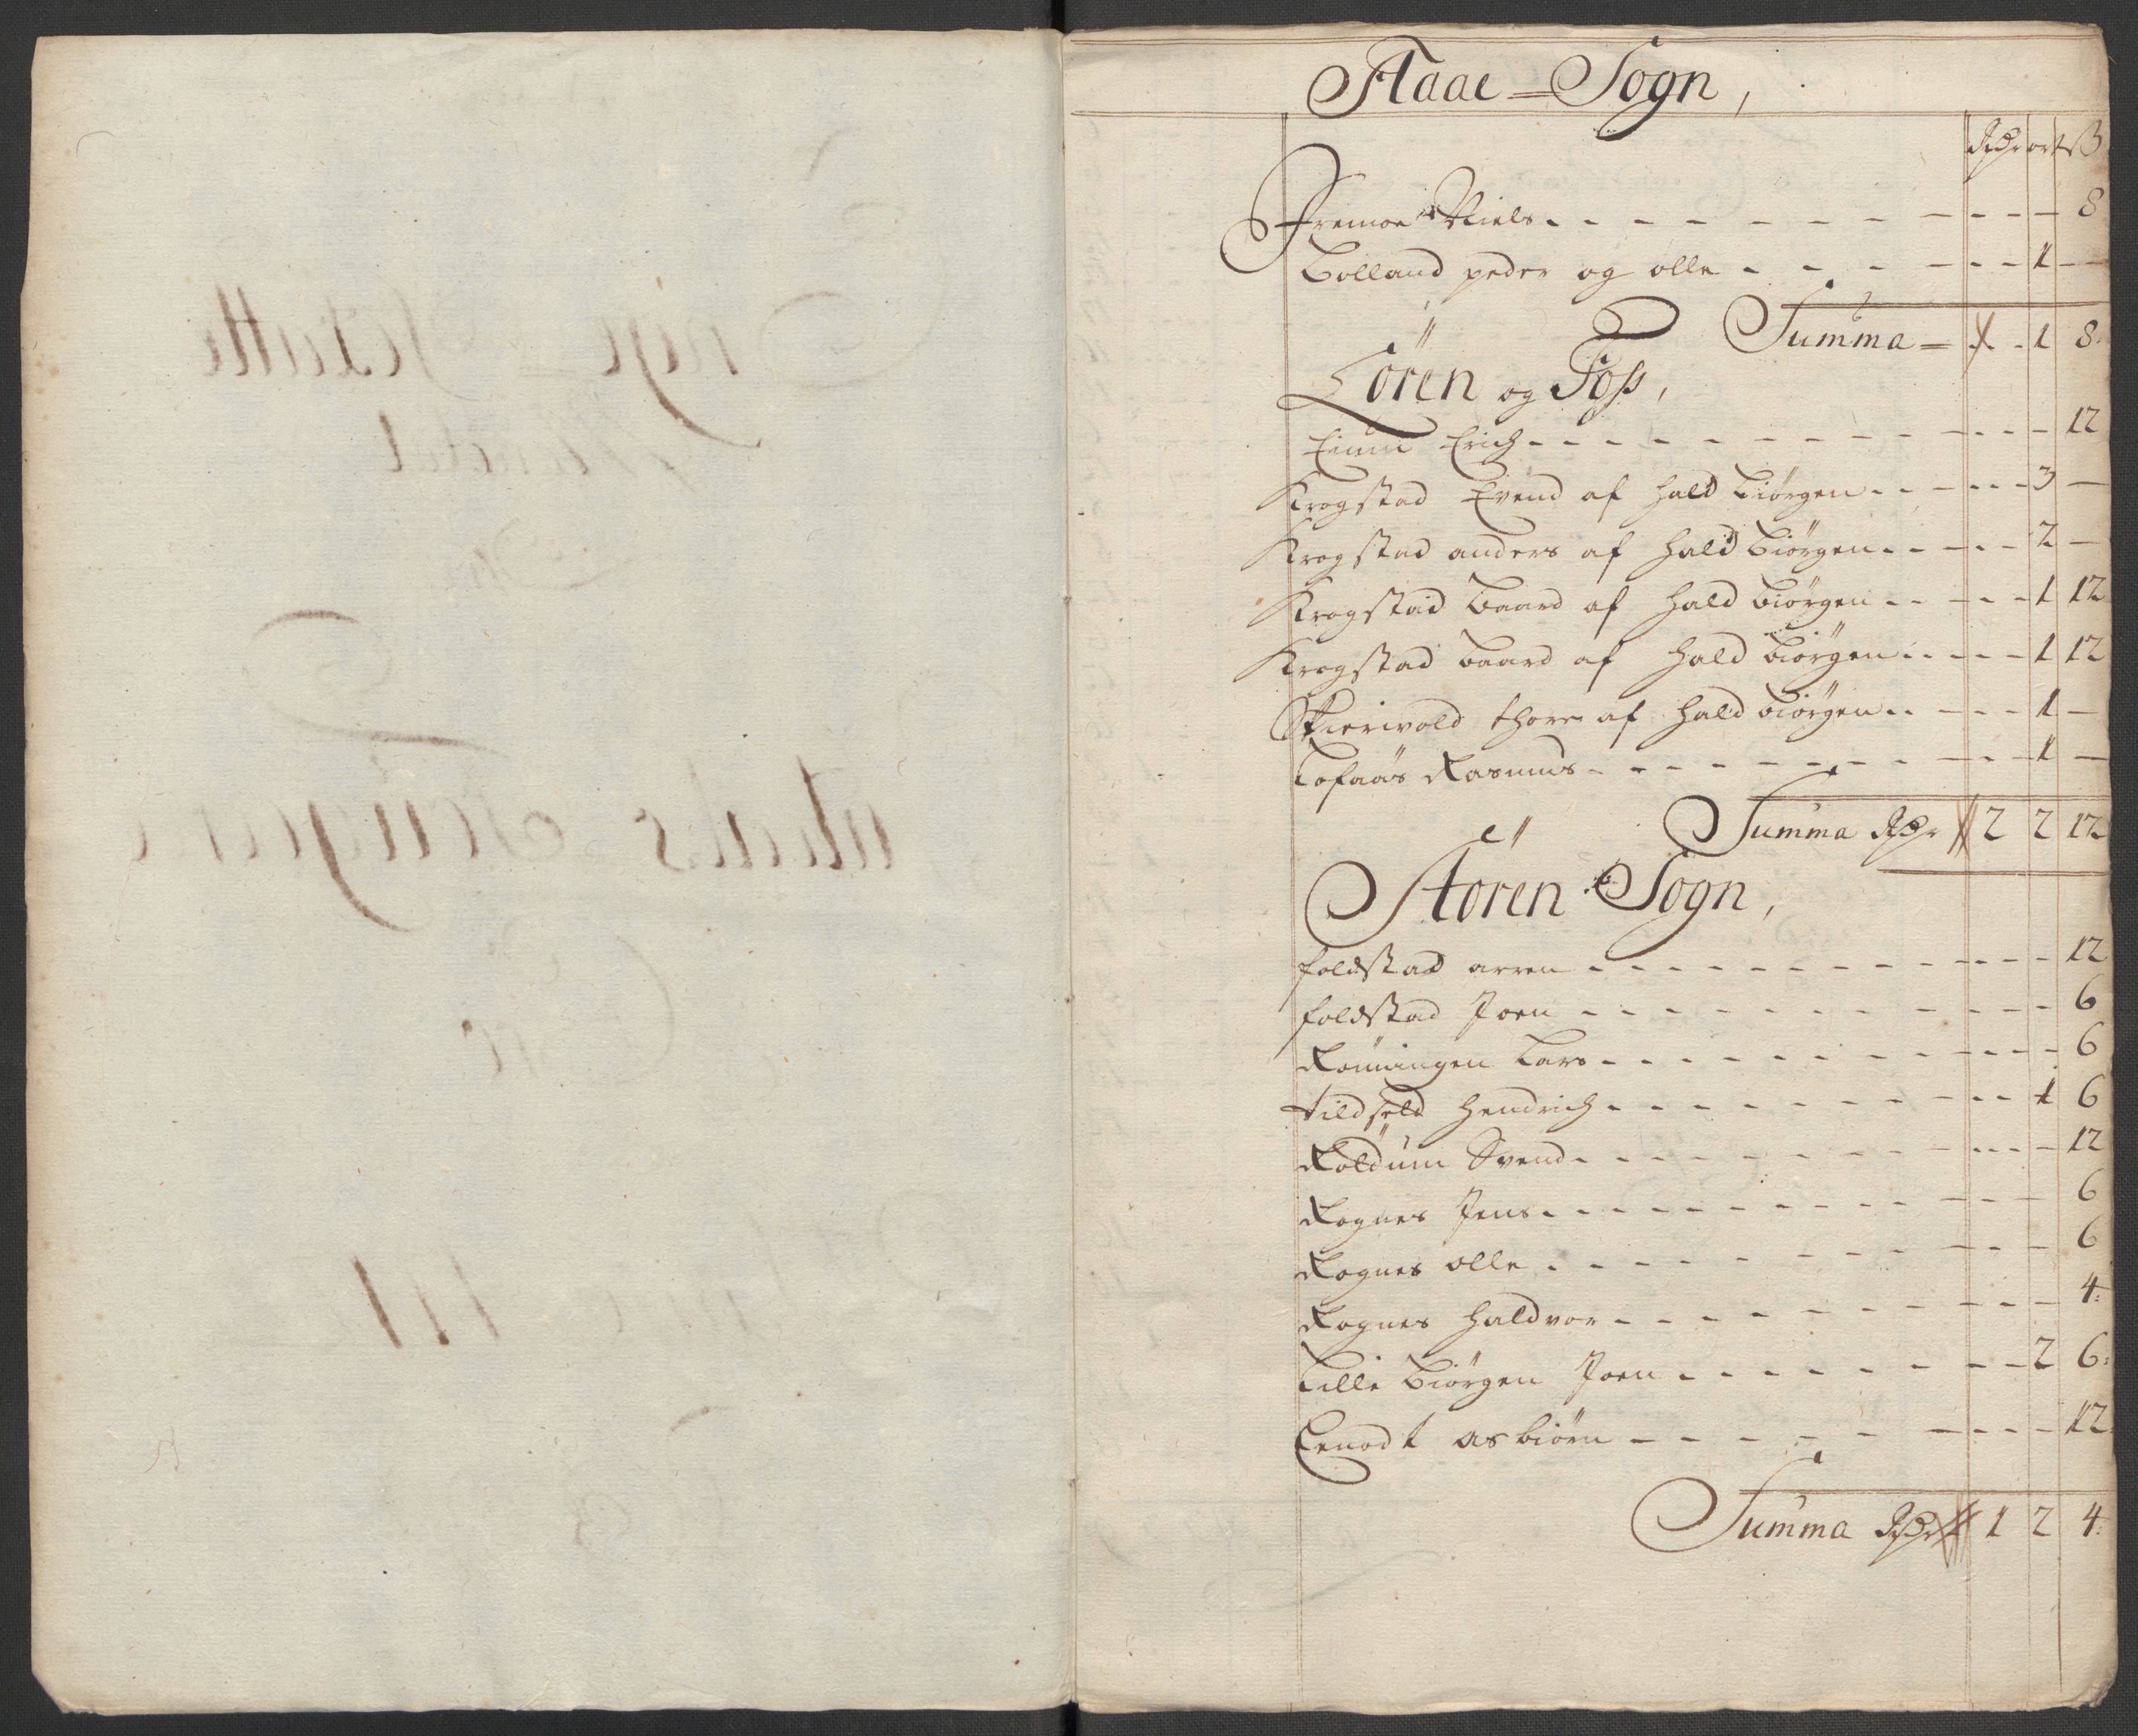 Flaae = Sogn,
Rdr ort ß
Fremoe Niels - - - 8
Bolland peder og olle - - 1 -
Summa = - 1 8
Lören og Foss,
Krogstad Evend af Hald biörgen - - 3 -
Krogstad anders af Hald biörgen - - 2 -
Krogstad baard af Hald biörgen - - 1 12
Krogstad baard af Hald biörgen - - 1 12
Skierivold thore af Hald biörgen - - 1 -
Lofaas Rasmus - - 1 -
Summa Rdr 2 2 12
Stören Sogn,
foldstad arren - - - 12
foldstad Joen - - - 6
Rönningen Lars - - - 6
Hendrich - - 1 6
Roldum Svend - - - 12
Rognes Jens - - - 6
Rognes olle - - - 6
Rognes Haldvor - - - 4
Lille Biörgen Joen - - 2 6
Enodt asbiörn - - - 12
Summa Rdr 1 2 4